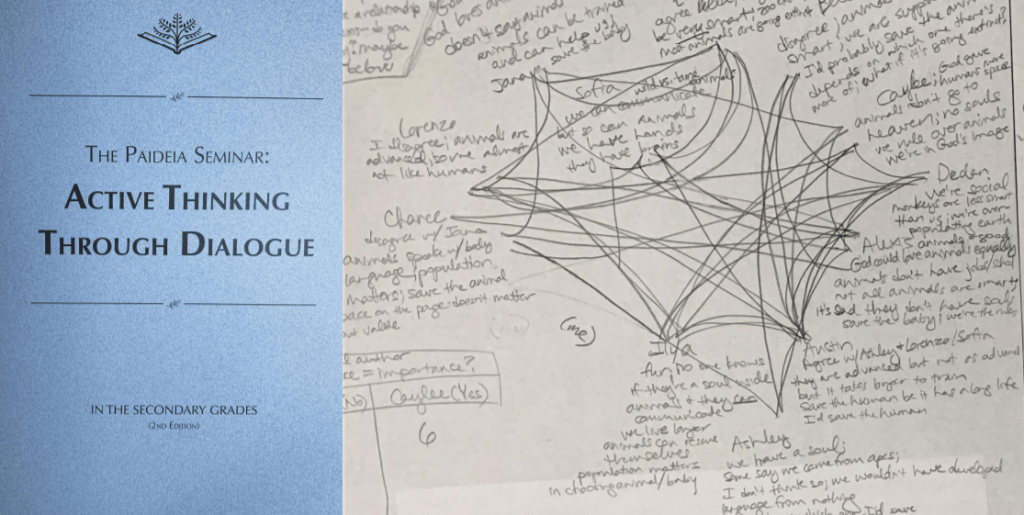 THE PAIDEIA SEMINAR:
ACTIVE THINKING
THROUGH DIALOGUE
IN THE SECONDARY GRADES
(2ND EDITION)
a relationship
maybe
God
doesn't say animals
animals can be trained
and can help us;
save the baby
Jana
agree
not animals are going extinct
disagree; animals
smart; we are
I'd probably save
depends on which one there's
more of; what if it's going extinct?
Sofia
wild vs. tame animals
we can communicate
but so can animals
we have hands
they have brains
Caylee; God gave
humans space
animals don't go to
heaven; no souls
we rule over animals
we're in God's image
Lorenzo
I disagree; animals are
advanced; some almost
act like humans
Dedan
we're social
monkeys are less smart
than us; we're over
populating earth
Chance
disagree w/ Jana
animals speak w/ body
language; population
matters; save the animal
space on the page doesn't matter
value
Alexis
God could love animals equally
animals don't have jobs/
not all animals are smart
it's sad they don't have souls
save the baby; we're the rulers
(me)
(me)
author
= importance?
(No)
Caylee (Yes)
6
no one knows
if they're a soul inside
animals & they can
communicate
we live longer
animals can rescue
themselves
population matters
in choosing animal/baby
Austin
Agree w/ Ashley & Lorenzo/Sofia
they are advanced but not as advanced
but it takes longer to train
Save the human bc it has a long life
I'd save the human
Ashley
we have a soul;
some say we came from apes;
I don't think so; we wouldn't have developed
language from nothing
I'd save